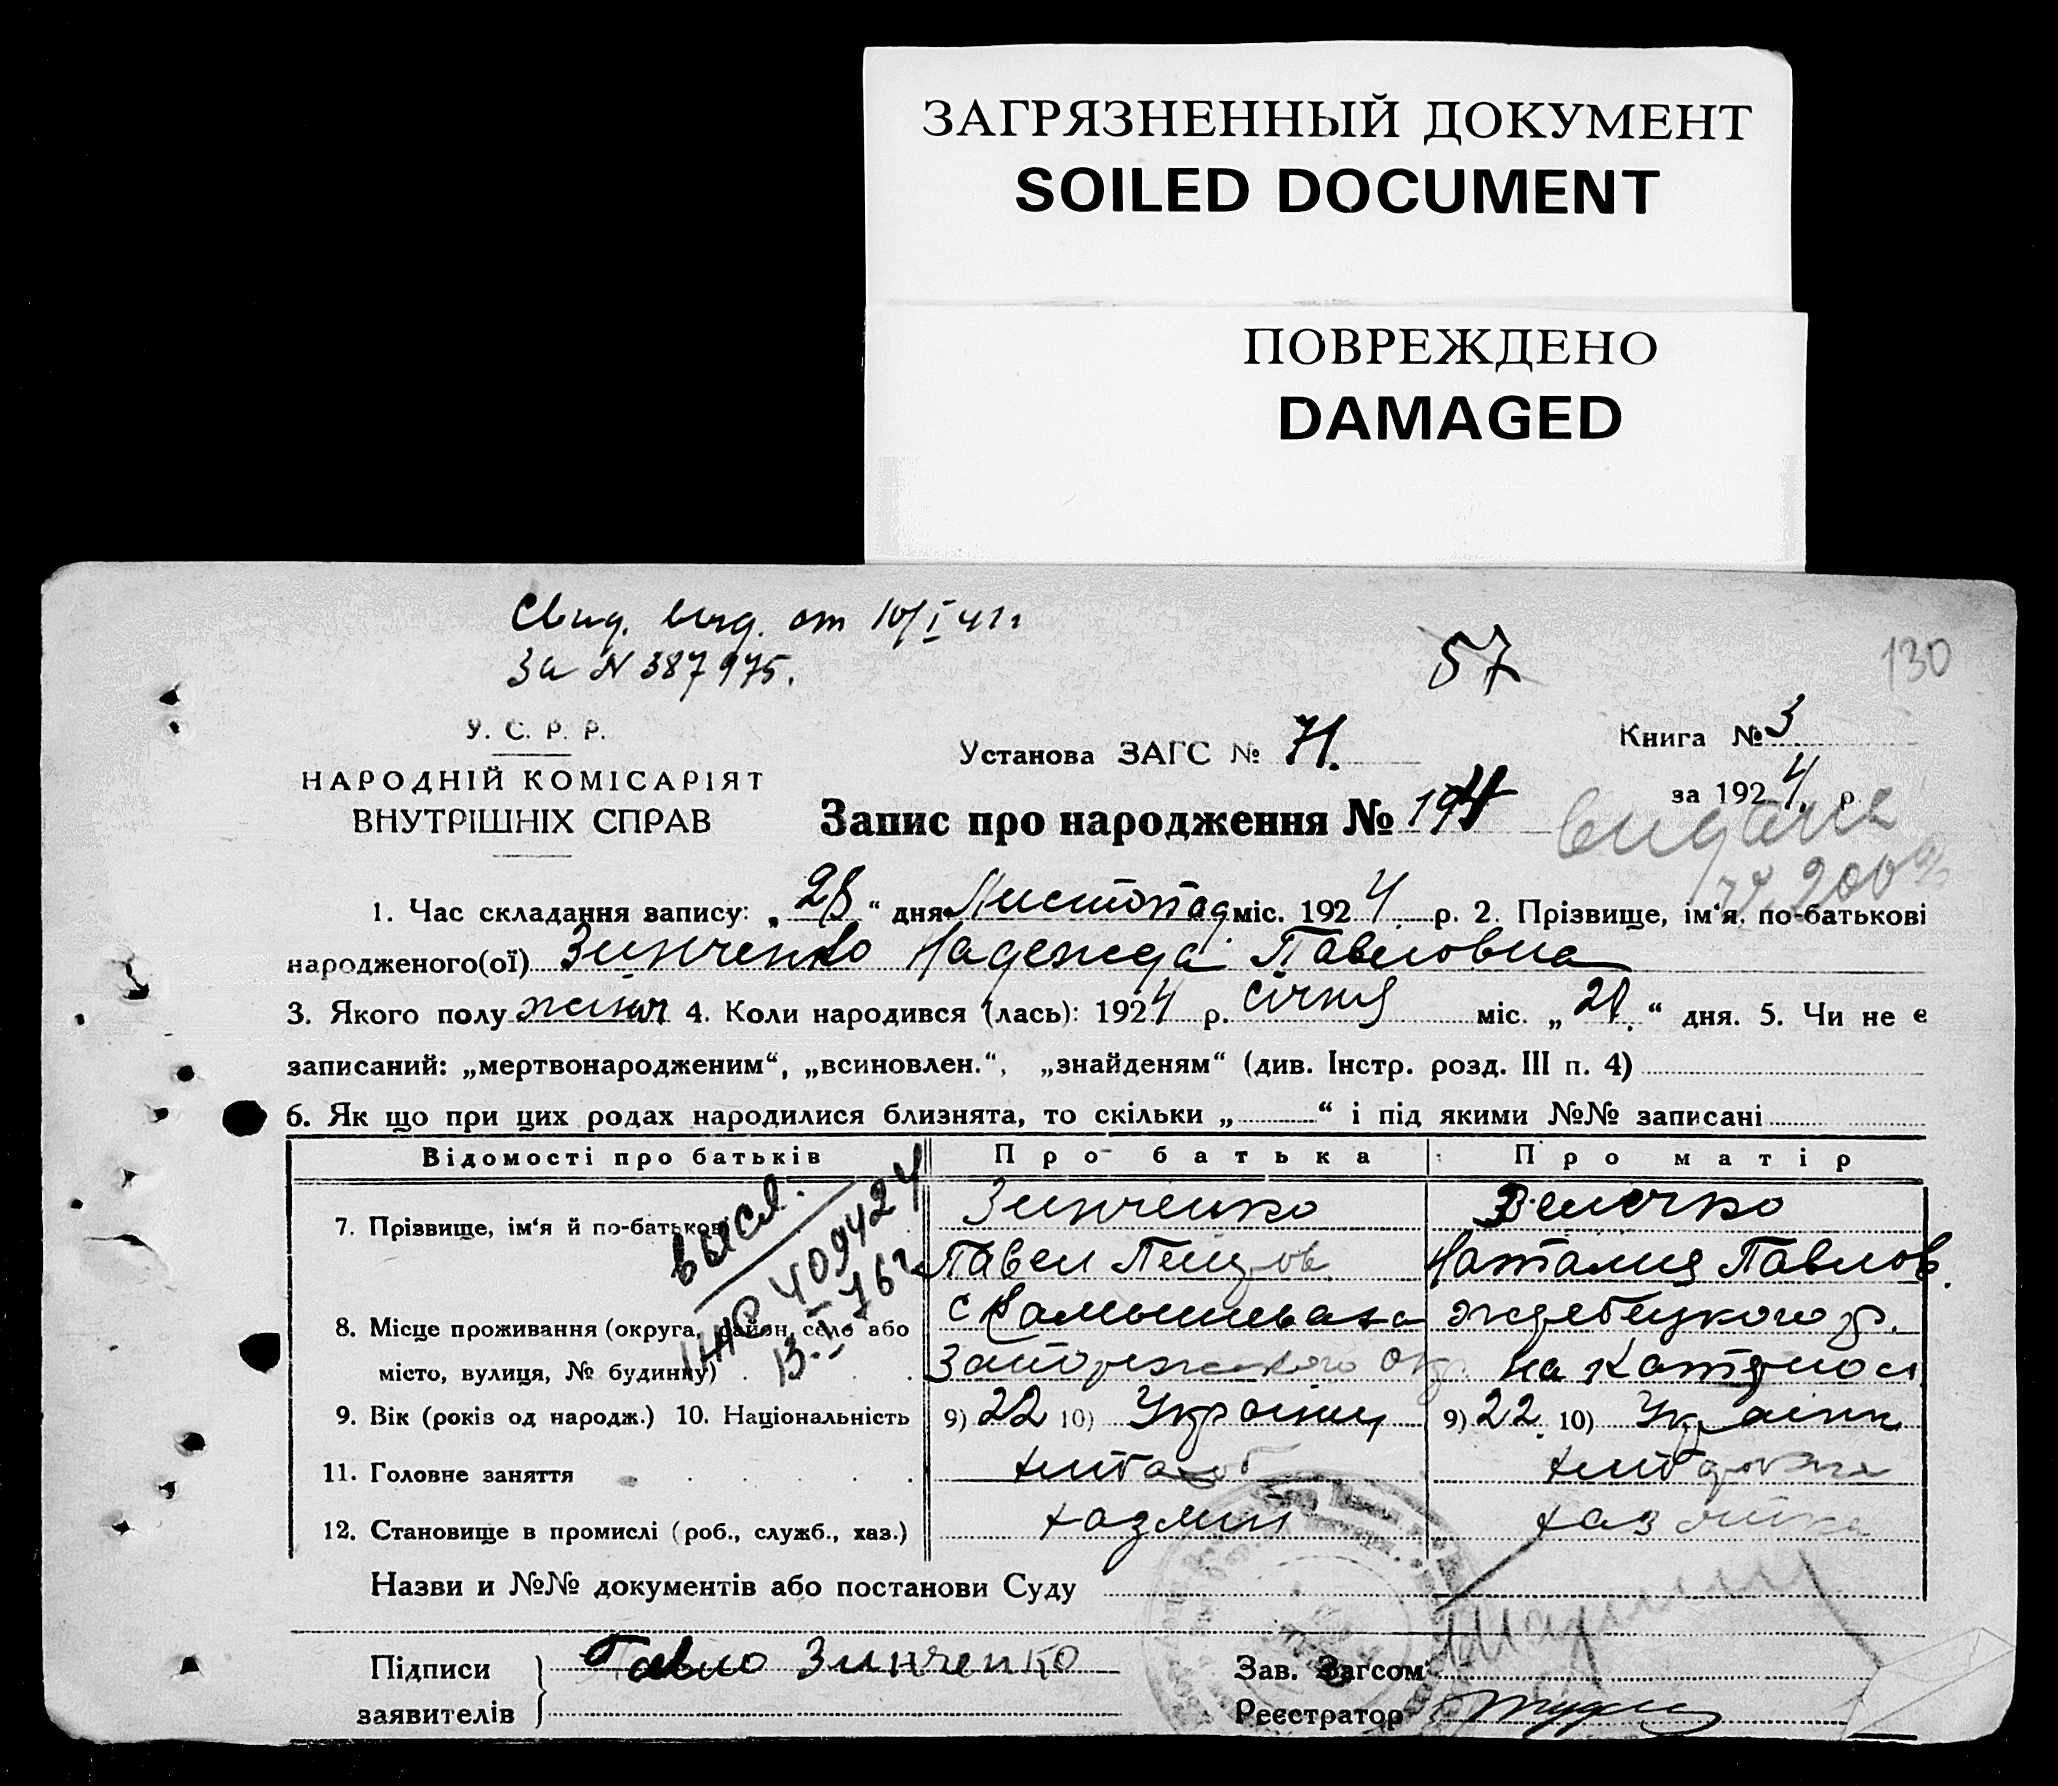 ЗАГРЯЗНЕННЫЙ ДОКУМЕНТ
SOILED DOCUMENT
ПОВРЕЖДЕНО
DAMAGED
Свид. выд. от 10/I 41 г
За № 387975.
57
130
У. С. Р. Р.
НАРОДНІЙ КОМІСАРІЯТ
ВНУТРІШНІХ СПРАВ
Установа ЗАГС № 71.
Книга № 3
за 1924 р.
Запис про народження № 194
1. Час складання запису: „28“ дня Листопад міс. 1924 р. 2. Прізвище, ім‘я, по-батькові
народженого(ої) Зинченко Надежда Павловна
3. Якого полу 4. Коли народився (лась): 1924 р. січня міс. „21.“ дня. 5. Чи не є
записаний: „мертвонародженим“, „всиновлен.“, „знайденям“ (див. Інстр. розд. III п. 4)
6. Як що при цих родах народилися близнята, то скільки „ “ і під якими №№ записані
Відомості про батьків Про батька Про матір
7. Прізвище, ім‘я й по-батькові Зинченко Величко
Павел Петров Наталия Павлов.
8. Місце проживання (округа, район, село або с Камышеваха
місто, вулиця, № будинку) Запорожского окр.
высл.
409424
13.I.76г
9. Вік (років од народж.) 10. Національність 9) 22 10) Украинц 9) 22. 10)
11. Головне заняття
12. Становище в промислі (роб., служб., хаз.)
Назви и №№ документів або постанови Суду
Підписи Павло Зинченко Зав. Загсом
заявителів Реєстратор